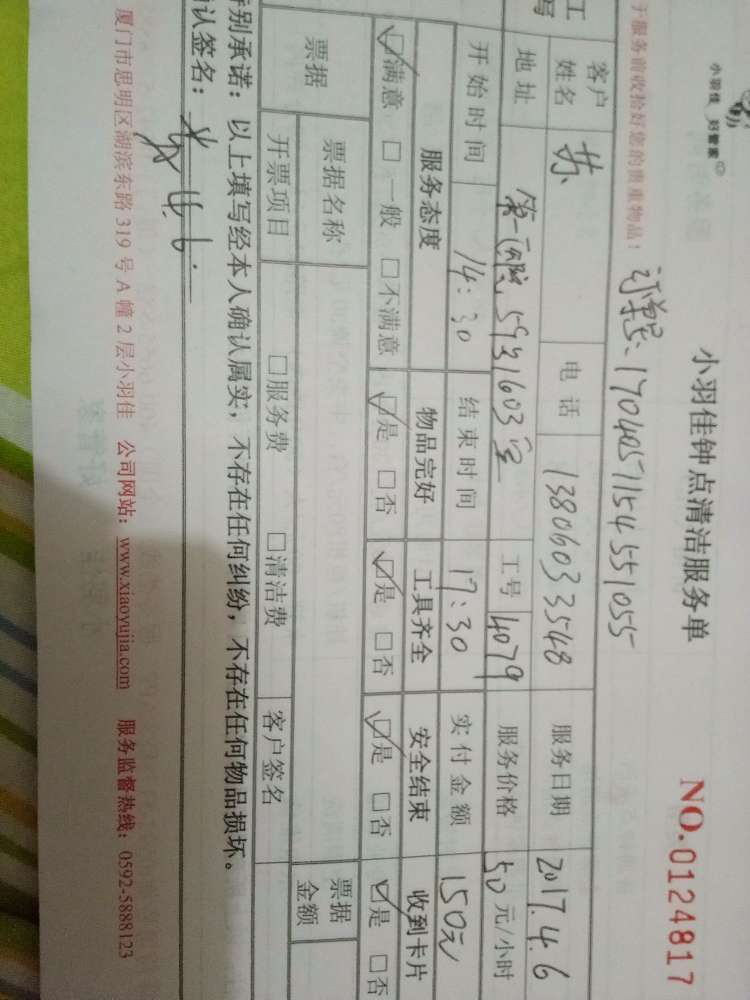 小羽佳 好管家
小羽佳钟点清洁服务单
NO.0124817
于服务前收拾好您的贵重物品!
订单号:170405115455 1055
工
写
客户姓名 苏 电话 13806033548 服务日期 2017.4.6
地址 第一医院 5931603室 工号 4079 服务价格 50元/小时
开始时间 14:30 结束时间 17:30 实付金额 150元
服务态度 物品完好 工具齐全 安全结束 收到卡片
☑满意 □一般 □不满意 ☑是 □否 ☑是 □否 ☑是 □否 ☑是 □否
票据 票据名称 票据金额
开票项目 □服务费 □清洁费 客户签名
特别承诺:以上填写经本人确认属实,不存在任何纠纷,不存在任何物品损坏。
认签名: 4.6.
厦门市思明区湖滨东路 319 号 A 幢 2 层小羽佳 公司网站:www.xiaoyujia.com 服务监督热线:0592-5888123